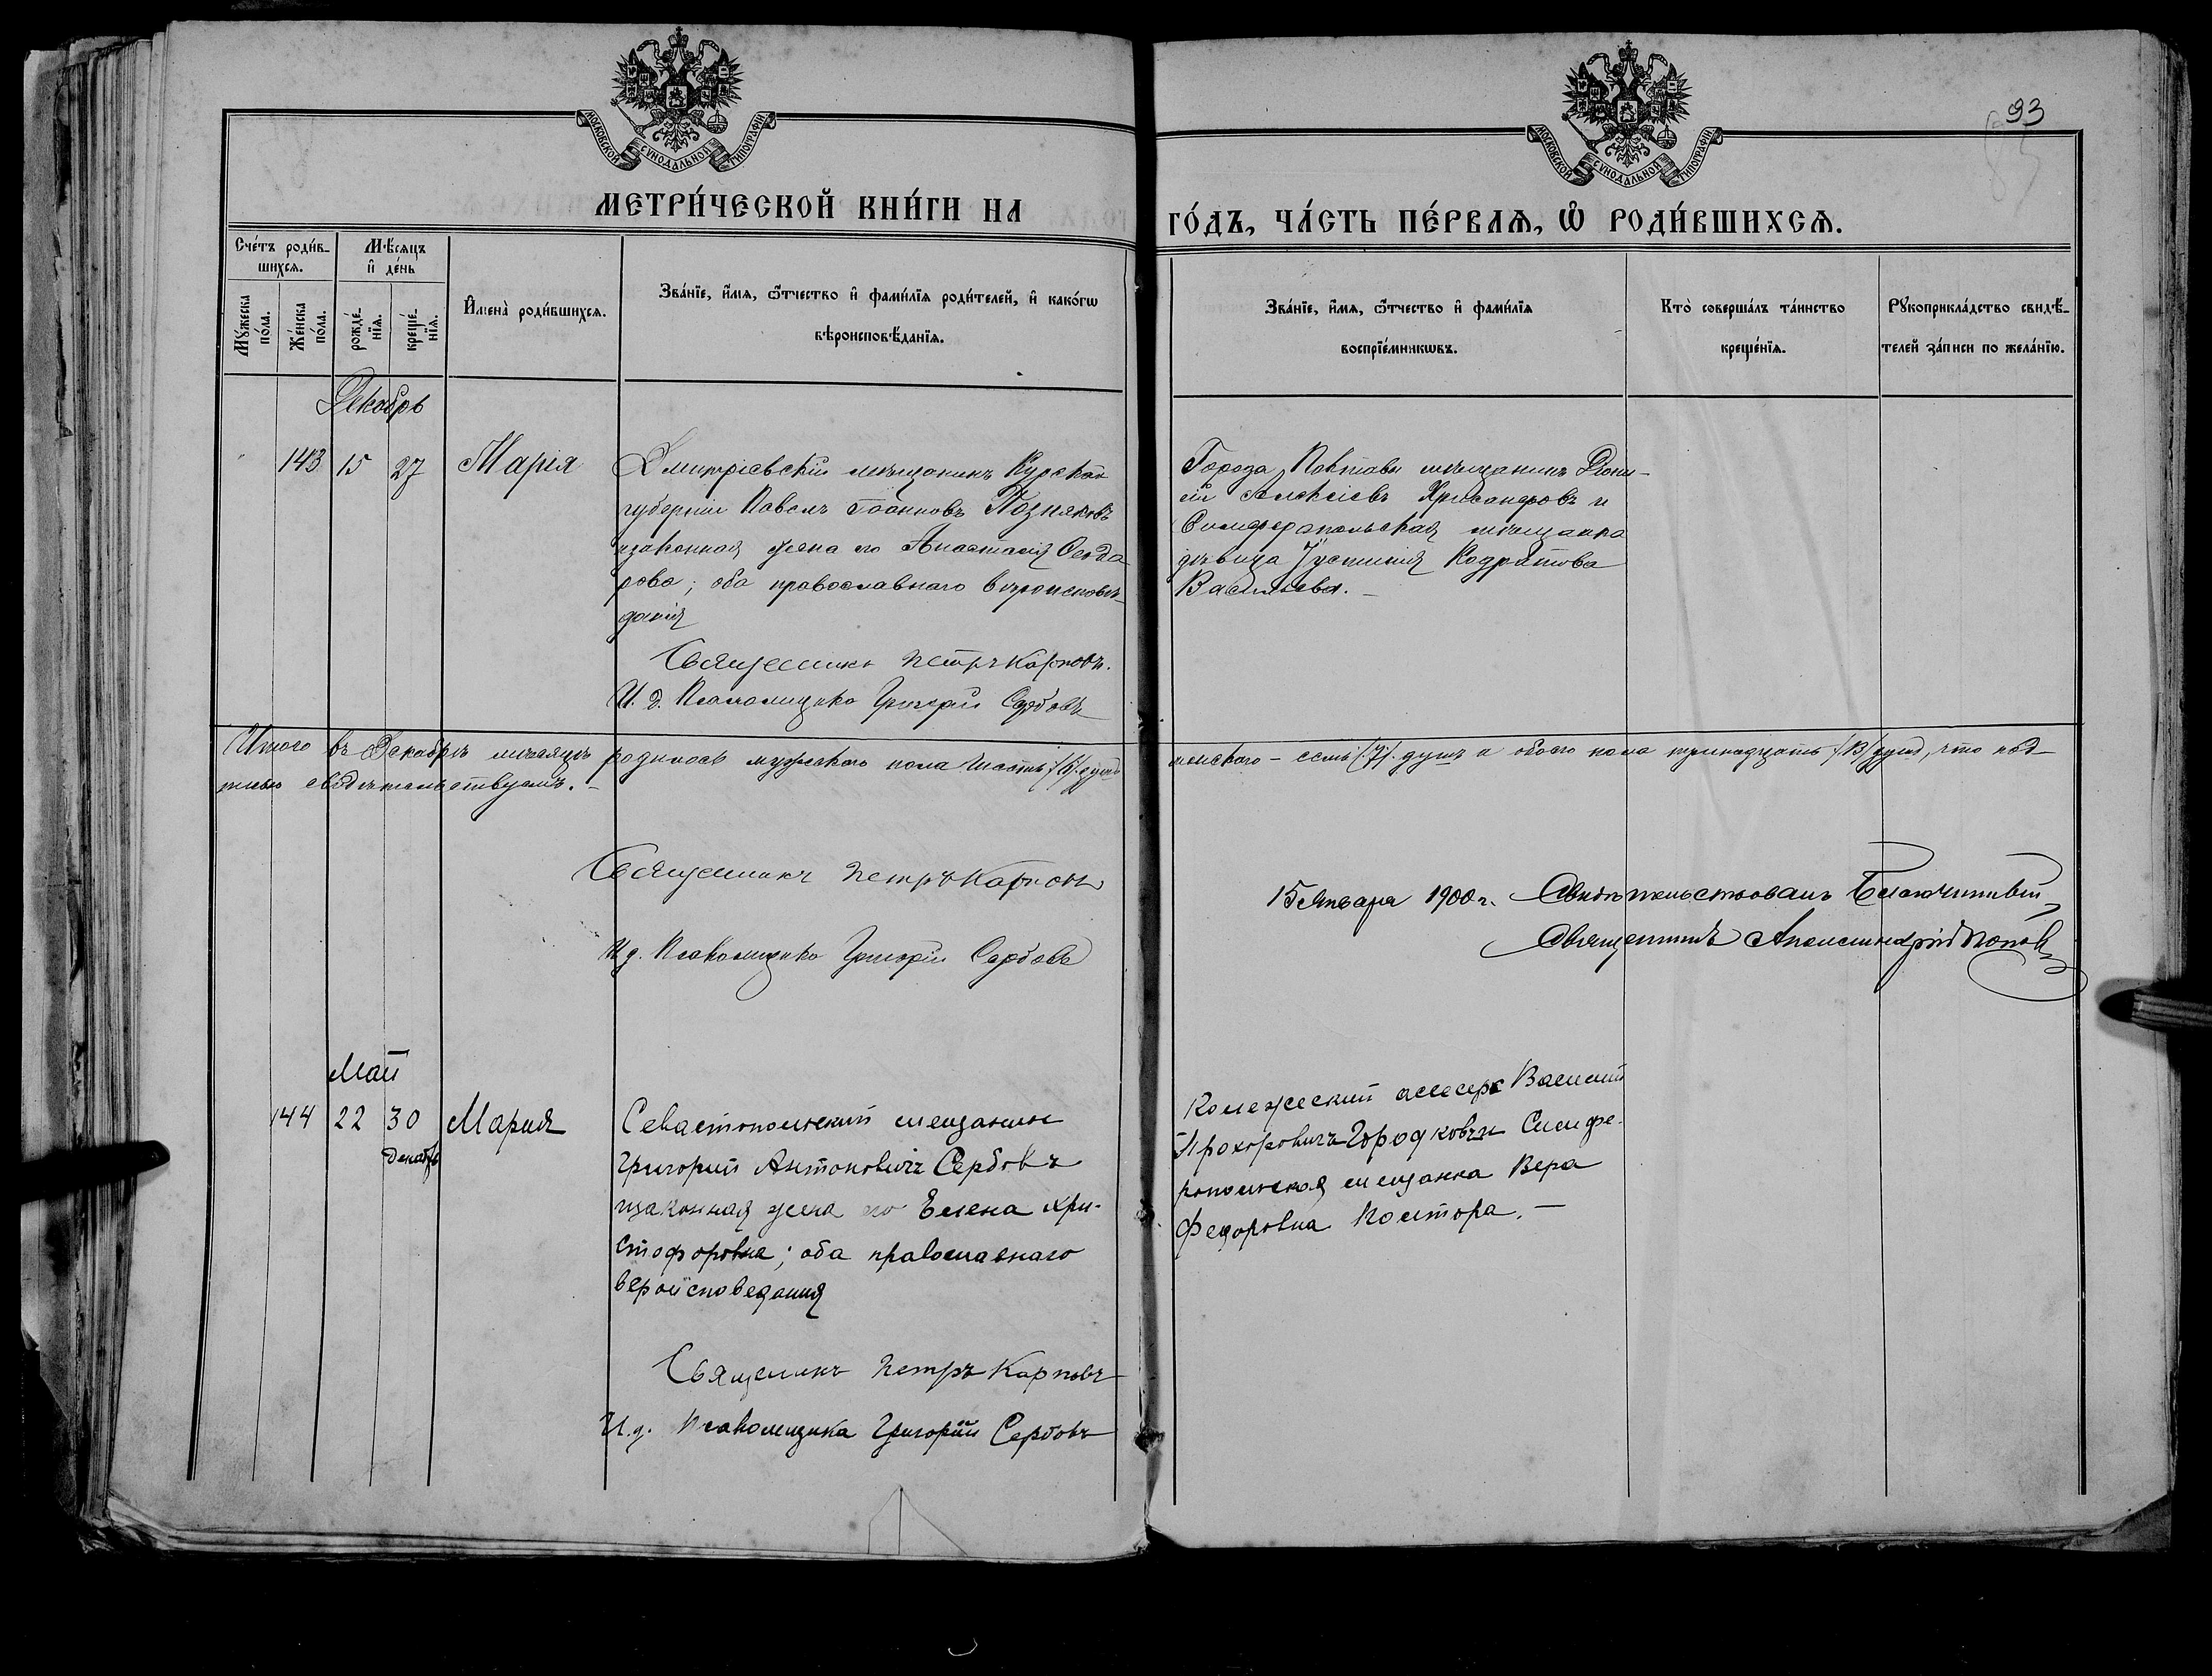 93
МОСКОВСКОЙ СѴНОДАЛЬНОЙ ТИПОГРАФІИ
МОСКОВСКОЙ СѴНОДАЛЬНОЙ ТИПОГРАФІИ
МЕТРИ́ЧЕСКОЙ КНИ́ГИ НА ГО́ДЪ, ЧА́СТЬ ПЕ́РВАѦ, Ѽ РОДИ́ВШИХСѦ.
Сче́тъ роди́в-
шихсѧ.
Мꙋ́жеска по́ла.
Же́нска по́ла.
Мѣ́сѧцъ и҆ де́нь
рожде́-нїѧ.
креще́-нїѧ.
И҆мена̀ роди́вшихсѧ.
Зва́нїе, и҆́мѧ, ѻ҆́тчество и҆ фами́лїѧ роди́телей, и҆ како́гѡ
вѣроисповѣ́данїѧ.
Зва́нїе, и҆́мѧ, ѻ҆́тчество и҆ фами́лїѧ
воспрїе́мникѡвъ.
Кто̀ соверша́лъ та́инство
креще́нїѧ.
Рꙋкоприкла́дство свидѣ́-
телей за́писи по жела́нїю.
Декабрь
143 15 27 Марія
Дмитріевскій мѣщанинъ Курской
губерніи Павелъ Іоанновъ Позняковъ
и законная жена его Анастасія Ѳеодо
рова; оба православнаго вѣроисповѣ-
данія
Священникъ Петръ Карповъ.
И. д. Псаломщика Григорій Сербовъ
Города Полтавы мѣщанинъ Діони-
сій Алексіевъ Хрисанфовъ и
Симферопольская мѣщанка
дѣвица Іустинія Кодратова
Васильева.
Итого въ Декабрѣ мѣсяцѣ родилось мужескаго пола шесть /6/ душъ женскаго - семь /7/. душъ а обоего пола тринадцать /13/ душъ, что под-
писью свидѣтельствуемъ.
Священникъ Петръ Карповъ
И д. Псаломщика Григорій Сербовъ
15 Января 1900 г. Свидѣтельствовалъ Благочинный
Священникъ Поповъ
Май
144 22 30 Мария
Декабрь
Севастопольский мещанинъ
Григорий Антоновичъ Сербовъ
и законная жена его Елена Хри-
стофоровна; оба православнаго
вероисповедания
Священникъ Петръ Карповъ
И. д. Псаломщика Григорій Сербовъ
Колежеский асесеръ Василий
Прохоровичъ Городковъ и Симфе-
ропольская мещанка Вера
Федоровна Контора. —